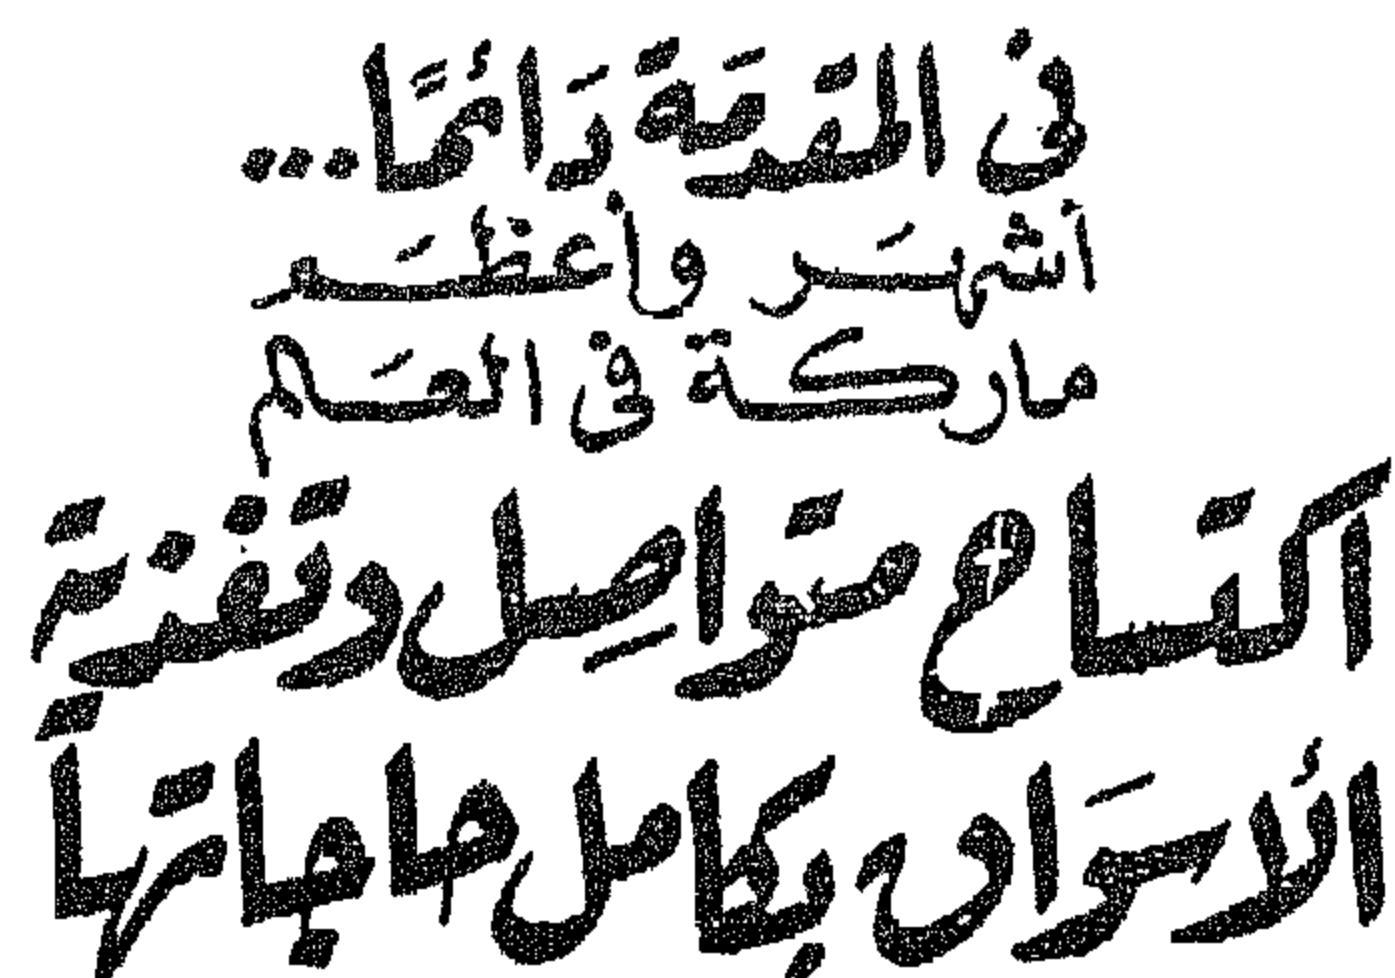 في المقدمة دَائمًا...
أشهَر وأعظَم
ماركة في العَالم
اكتساح متواصِل وتغذية
الأسوَاق بكامل حاجياتها